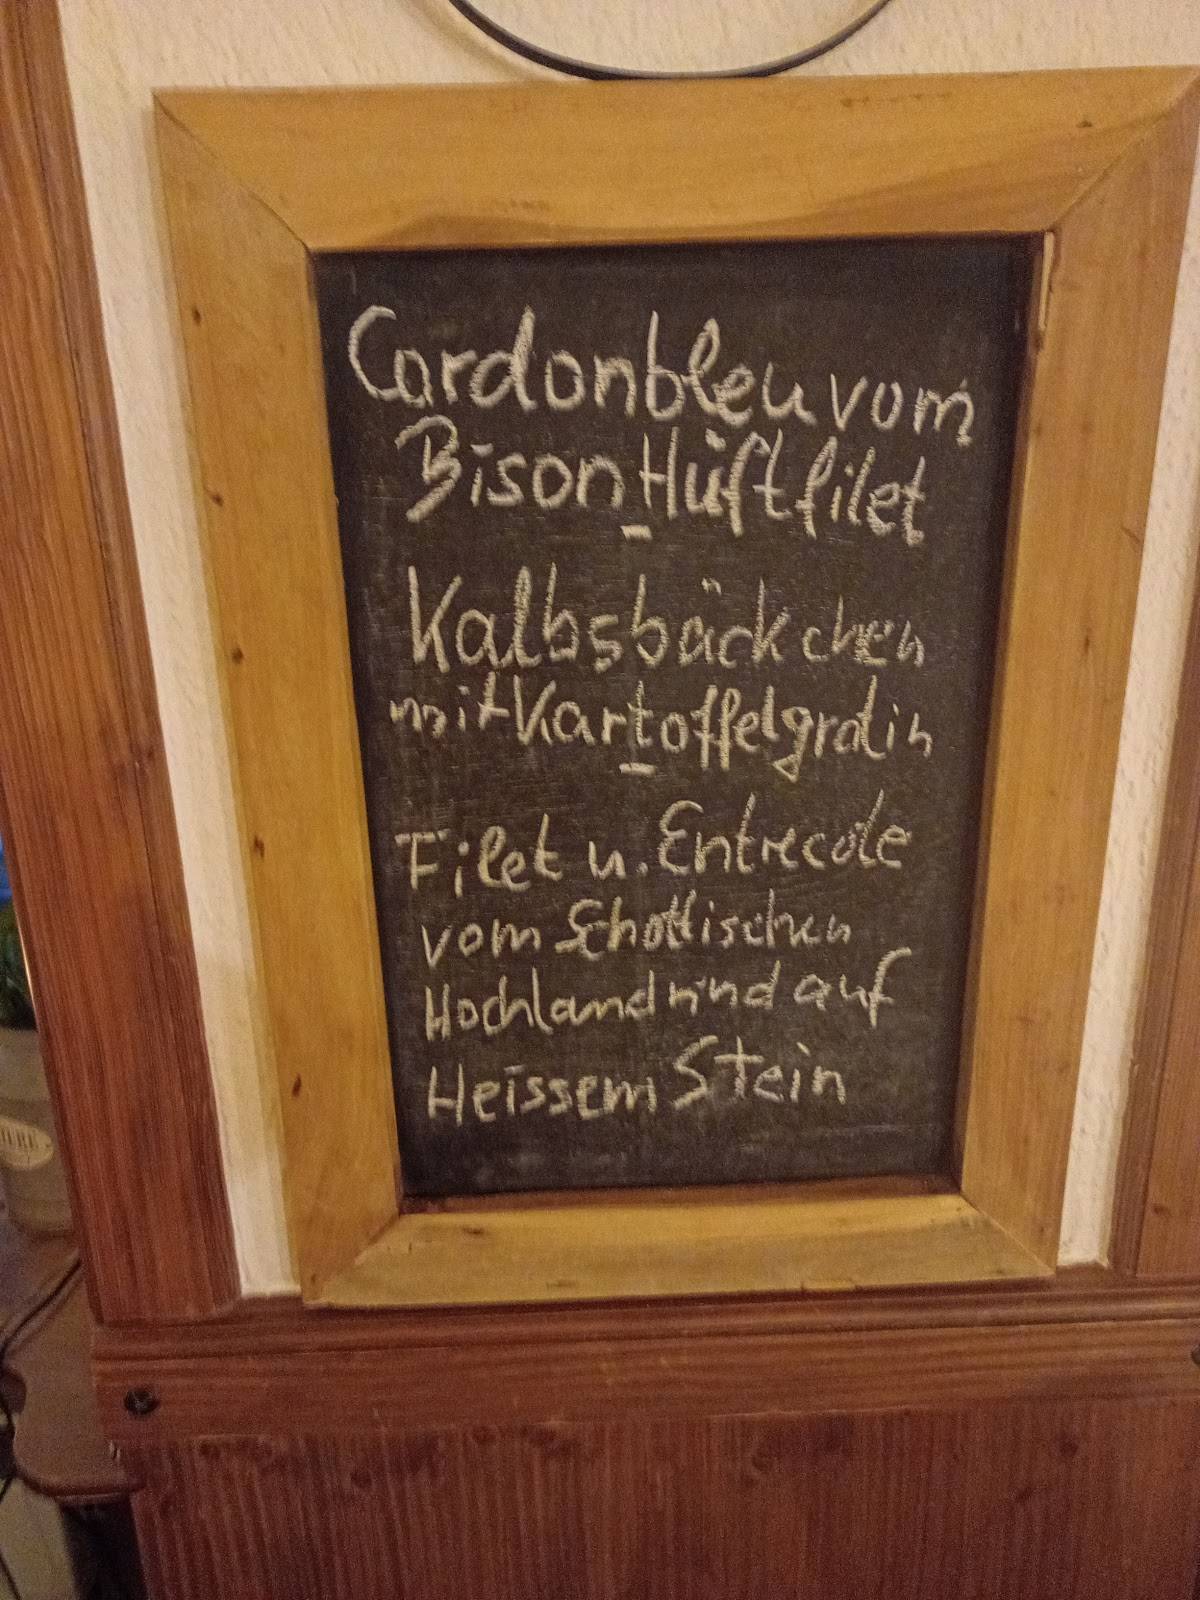 Cordonbleu vom
Bison Hüftfilet
Kalbsbäckchen
mit Kartoffelgratin
Filet u. Entrecote
vom Schottischen
Hochlandrind auf
Heissem Stein